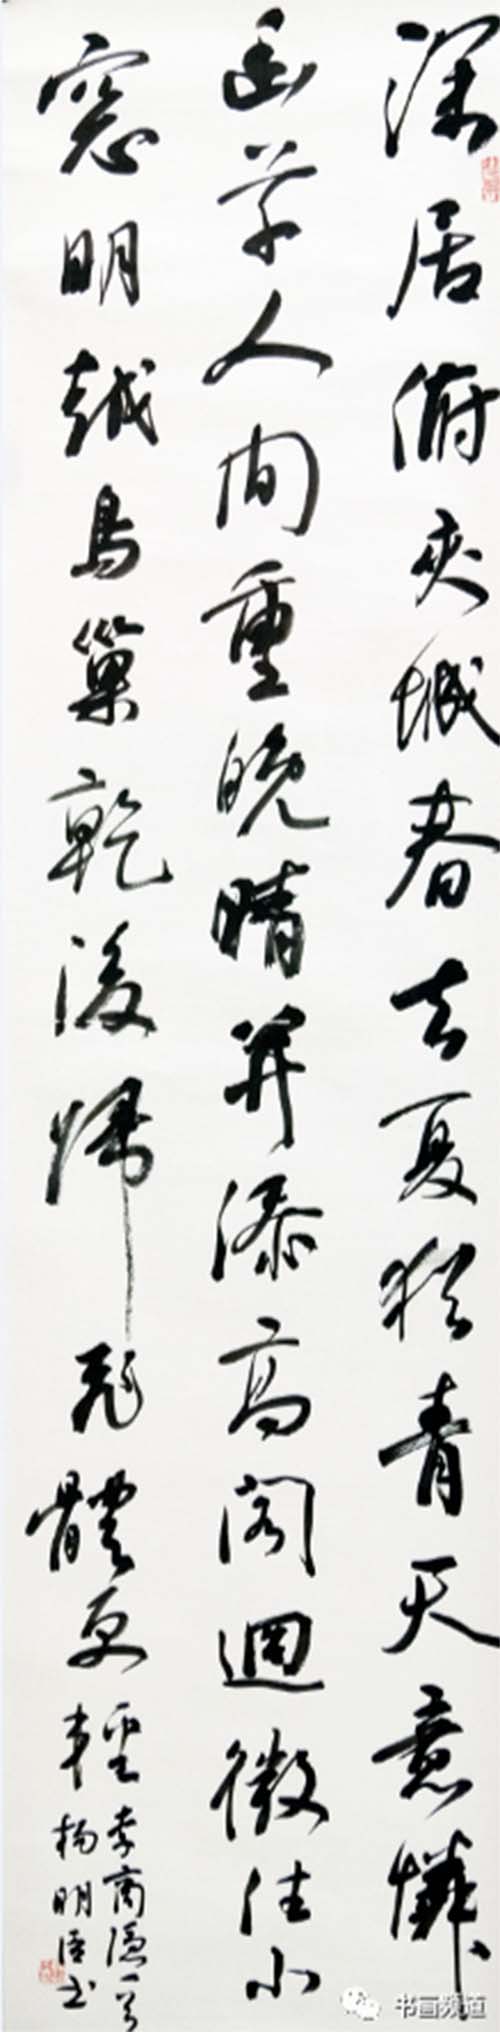 深居俯夾城春去夏猶青天意憐
幽草人间重晚晴并添高阁迴微住小
窓明越鸟巢乾後歸飛體更輕
李商隱一首
楊明臣书
书画频道